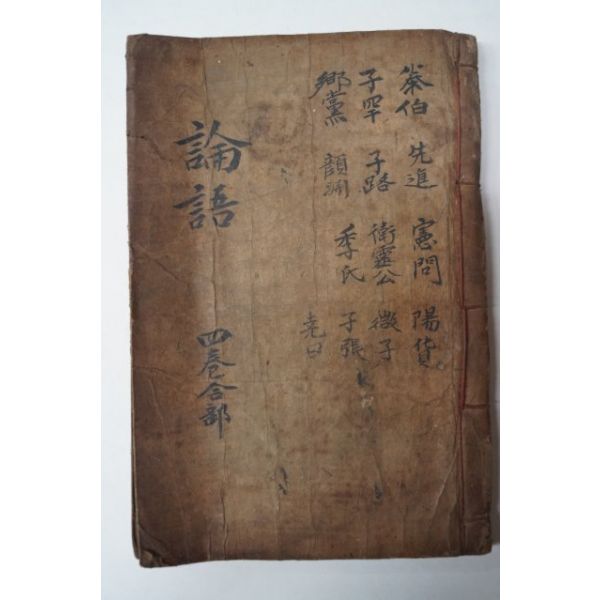 泰伯 先進 憲問 陽貨
子罕 子路 衛靈公 微子
鄕黨 顔淵 季氏 子張
堯曰
論語
四卷合部